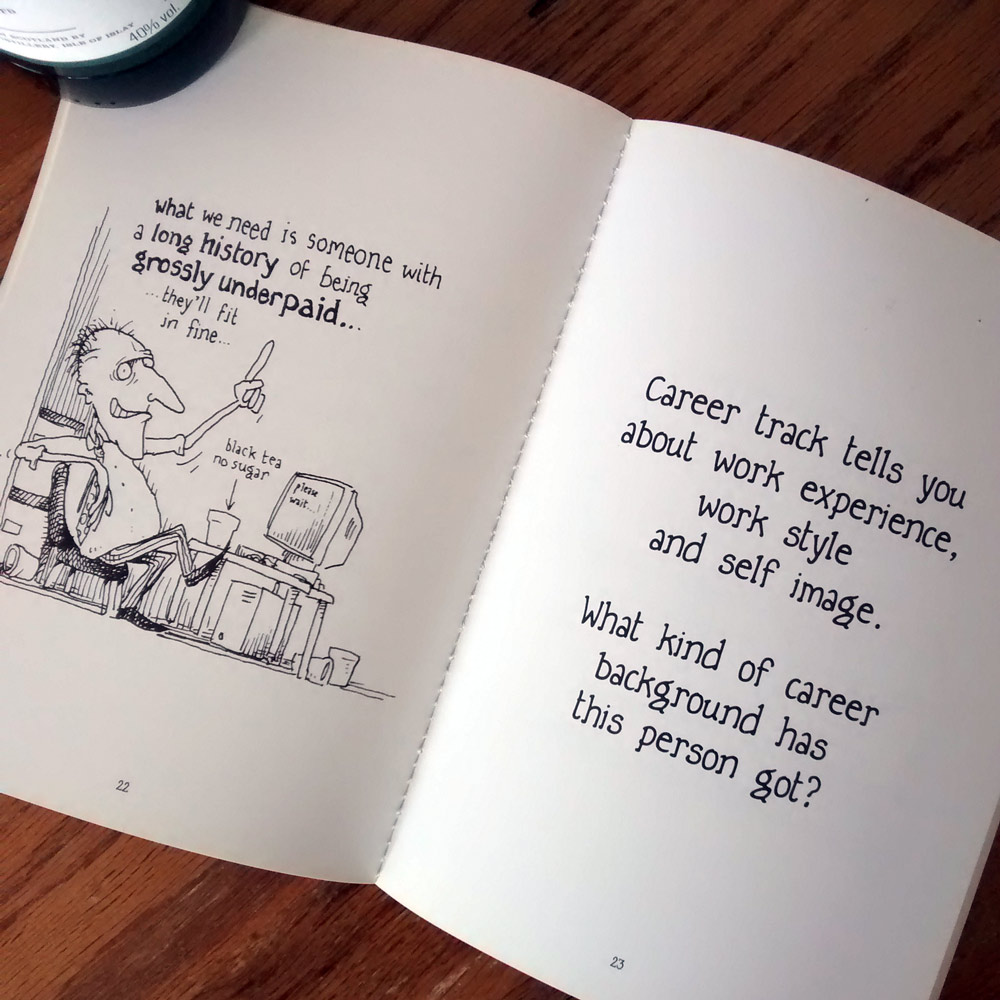 SCOTLAND BY
DISTILLERY, ISLE OF ISLAY
40% vol.
what we need is someone with
a long history of being
grossly underpaid...
...they'll fit
in fine...
black tea
no sugar
please
wait...
22
Career track tells you
about work experience,
work style
and self image.
What kind of career
background has
this person got?
23